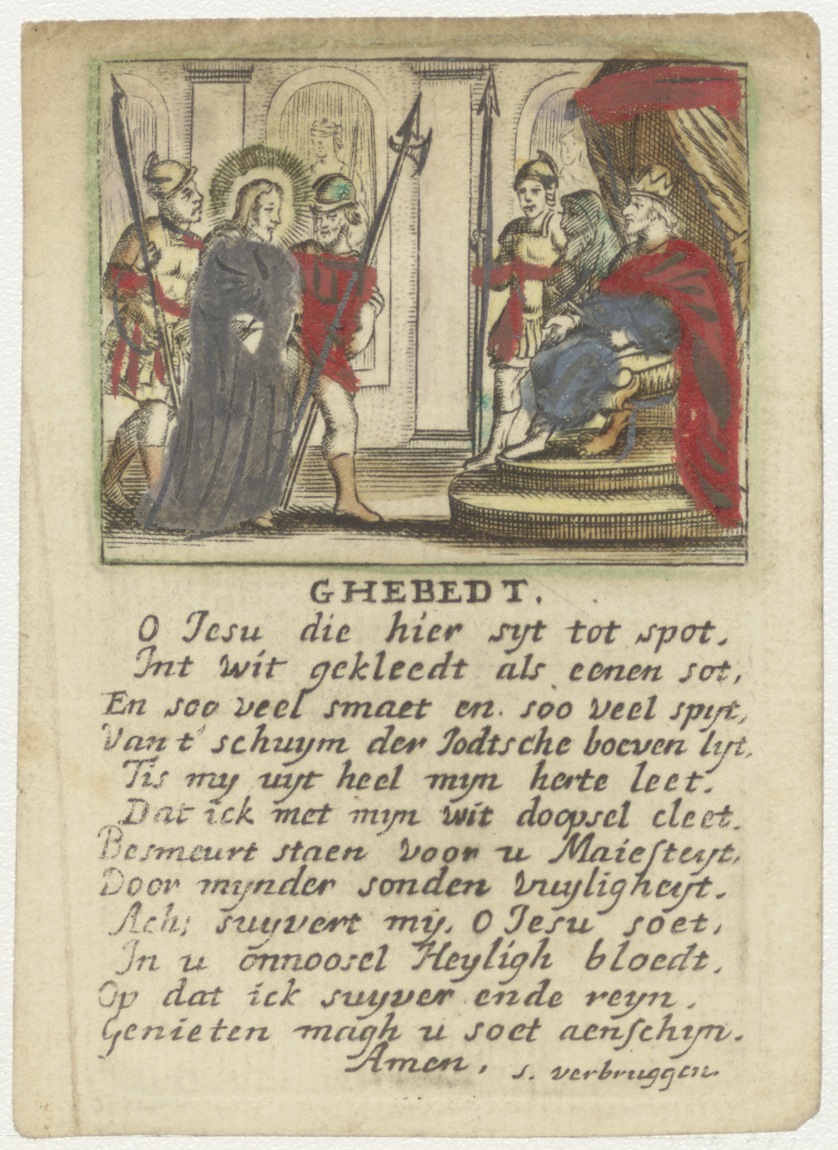 GHEBEDT.
O Iesu die hier syt tot spot.
Int wit gekleedt als eenen sot,
En soo veel smaet en soo veel spijt,
Van t' schuym der Jodtsche boeven lijt.
Tis my uijt heel mijn herte leet.
Dat ick met mijn wit doopsel cleet.
Besmeurt staen voor u Maiesteijt,
Door mijnder sonden vuyligheijt.
Ach; suyvert mij, O Iesu soet,
In u onnoosel Heyligh bloedt.
Op dat ick suyver ende reyn.
Genieten magh u soet aenschijn.
Amen, s. verbruggen.